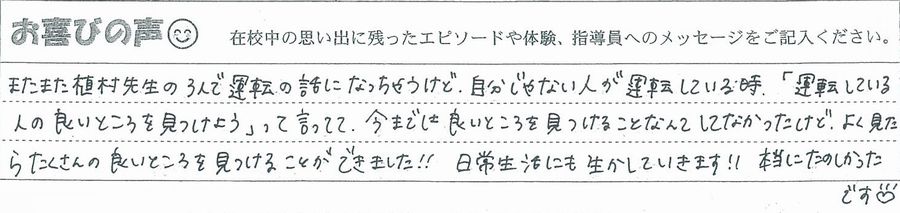 お喜びの声 在校中の思い出に残ったエピソードや体験、指導員へのメッセージをご記入ください。
またまた植村先生のろんで運転の話になっちゃうけど、自分じゃない人が運転している時、「運転している
人の良いところを見つけよう」って言ってて、今までは良いところを見つけることなんてしてなかったけど、よく見た
らたくさんの良いところを見つけることができました!! 日常生活にも生かしていきます!! 本当にたのしかった
です